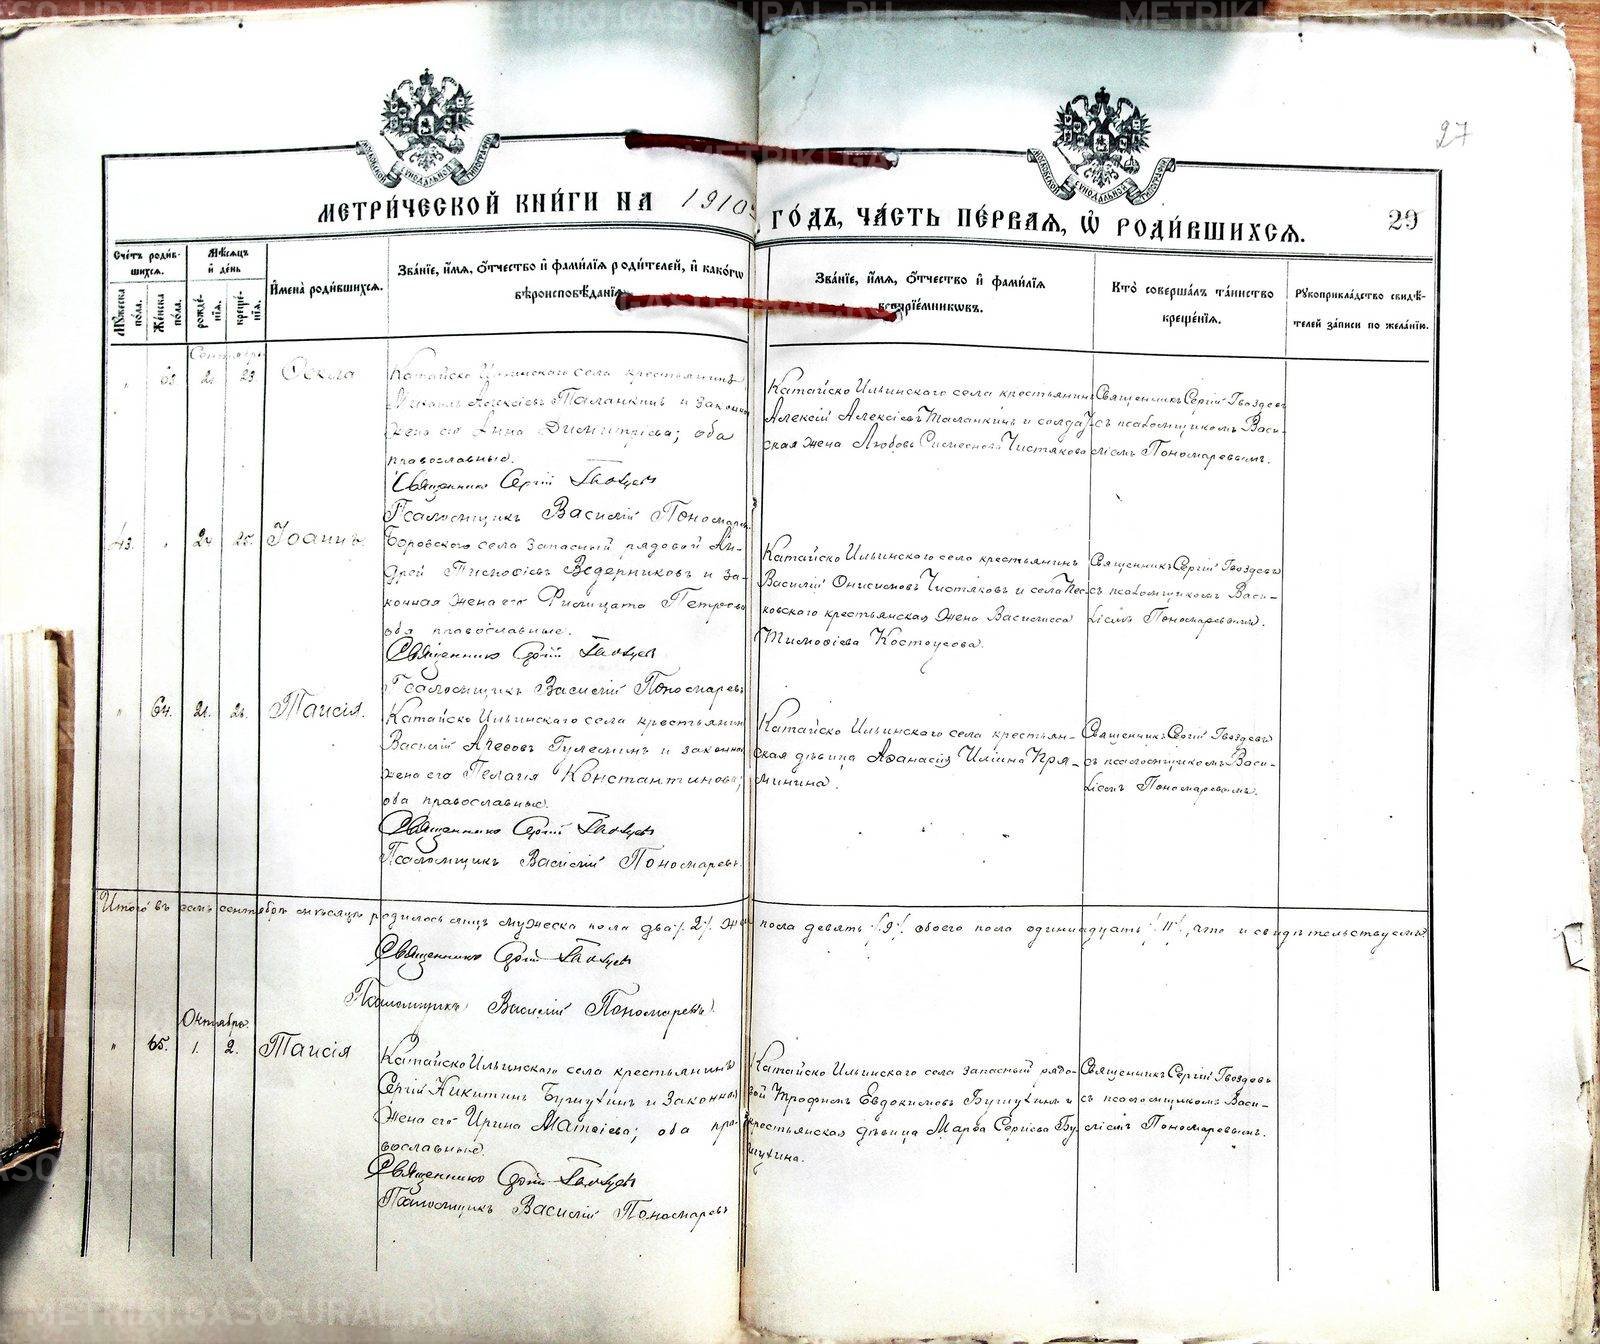 METRIKI.GASO-URAL.RU
27
МЕТРИ́ЧЕСКОЙ КНИ́ГИ НА 1910й ГО́ДЪ, ЧА́СТЬ ПЕ́РВАЯ, Ѡ РОДИ́ВШИХСЯ.
29
Сче́тъ роди́вшихся.
Му́жеска по́ла.
Же́нска по́ла.
Мѣ́сяцъ и҆ де́нь
рожде́нїя.
креще́нїя.
И҆мена̀ роди́вшихся.
Зва́нїе, и҆́мя, ѻ҆́тчество и҆ фами́лїя роди́телей, и҆ како́гѡ
вѣроисповѣ́данїя.
Зва́нїе, и҆́мя, ѻ҆́тчество и҆ фами́лїя
воспрїе́мникѡвъ.
Кто̀ соверша́лъ та́инство
креще́нїя.
Рукоприкла́дство свидѣ́-
телей за́писи по жела́нїю.
Сентябрь
63
21
23
Ѳекла
Катайско Ильинскаго села крестьянинъ
Алексіевъ Таланкинъ и законная
жена его Анна Димитріева; оба
православные.
Священникъ Сергій Гвоздевъ
Псаломщикъ Василій Пономаревъ
Катайско Ильинскаго села крестьянинъ
Алексій Алексіевъ Таланкинъ и солдат-
ская жена Любовь Симеонова Чистякова
Священникъ Сергій Гвоздевъ
съ псаломщикомъ Васи-
ліемъ Пономаревымъ.
43.
24
25.
Іоаннъ
Боровскаго села запасный рядовой Ан-
дрей Тимофіевъ Ведерниковъ и за-
конная жена его Филицата Петрова
оба православные.
Священникъ Сергій Гвоздевъ
Псаломщикъ Василій Пономаревъ
Катайско Ильинскаго села крестьянинъ
Василій Онисимовъ Чистяковъ и села Пес-
ковского крестьянская жена Василисса
Тимофіева Костоусова.
Священникъ Сергій Гвоздевъ
съ псаломщикомъ Васи-
ліемъ Пономаревымъ.
64.
21.
26.
Таисія.
Катайско Ильинскаго села крестьянин
Василій Гулеминъ и законная
жена его Пелагія Константинова;
оба православные.
Священникъ Сергій Гвоздевъ
Псаломщикъ Василій Пономаревъ.
Катайско Ильинскаго села крестьян-
ская дѣвица Аѳанасія Иліина Пря-
минина.
Священникъ Сергій Гвоздевъ
съ псаломщикомъ Васи-
ліемъ Пономаревымъ.
Итого въ семъ сентябрѣ мѣсяцѣ родилось лицъ мужеска пола два /2/. Жен пола девять /9/. обоего пола одиннадцать /11/, что и свидѣтельствуемъ.
Священникъ Сергій Гвоздевъ
Псаломщикъ Василій Пономаревъ
Октябрь.
65.
1.
2.
Таисія
Катайско Ильинскаго села крестьянинъ
Сергій Никитинъ Бушухинъ и законная
жена его Ирина Матѳіева; оба пра-
вославные.
Священникъ Сергій Гвоздевъ
Псаломщикъ Василій Пономаревъ
Катайско Ильинскаго села запасный рядо-
вой Трофимъ Евдокимовъ Бушухинъ и
крестьянская дѣвица Марѳа Сергіева Бу-
шухина.
Священникъ Сергій Гвоздевъ
съ псаломщикомъ Васи-
ліемъ Пономаревымъ.
METRIKI.GASO-URAL.RU